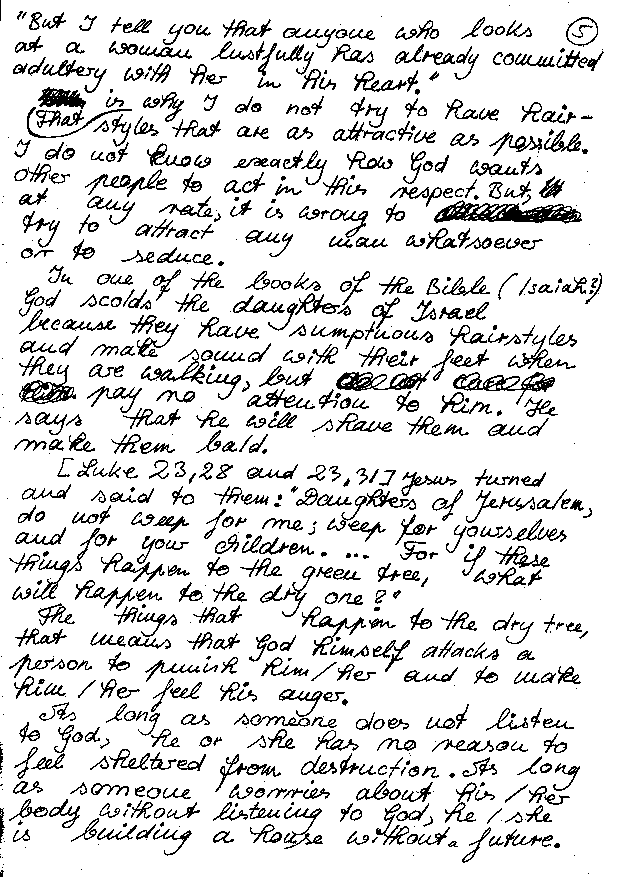 "But I tell you that anyone who looks ⑤
at a woman lustfully has already committed
adultery with her in his heart."
That is why I do not try to have hair-
styles that are as attractive as possible.
I do not know exactly how God wants
other people to act in this respect. But,
at any rate, it is wrong to
try to attract any man whatsoever
or to seduce.
In one of the books of the Bible (Isaiah?)
God scolds the daughters of Israel
because they have sumptuous hairstyles
and make sound with their feet when
they are walking, but
pay no attention to him. He
says that he will shave them and
make them bald.
[Luke 23,28 and 23,31] Jesus turned
and said to them: "Daughters of Jerusalem,
do not weep for me; weep for yourselves
and for your children. ... For if these
things happen to the green tree, what
will happen to the dry one?"
The things that happen to the dry tree,
that means that God himself attacks a
person to punish him/her and to make
him/her feel his anger.
As long as someone does not listen
to God, he or she has no reason to
feel sheltered from destruction. As long
as someone worries about his/her
body without listening to God, he/she
is building a house without a future.